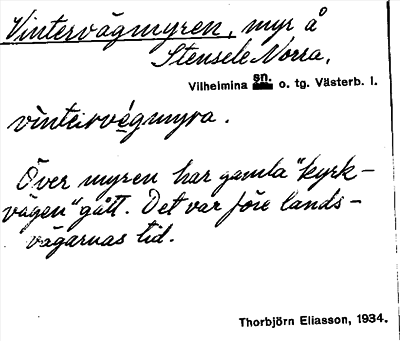 Vintervägmyren, myr å
Stensele Norra,
Vilhelmina sn. o. tg. Västerb. l.
vìntervégmyra.
Över myren har gamla "kyrk-
vägen" gått. Det var före lands-
vägarnas tid.
Thorbjörn Eliasson, 1934.